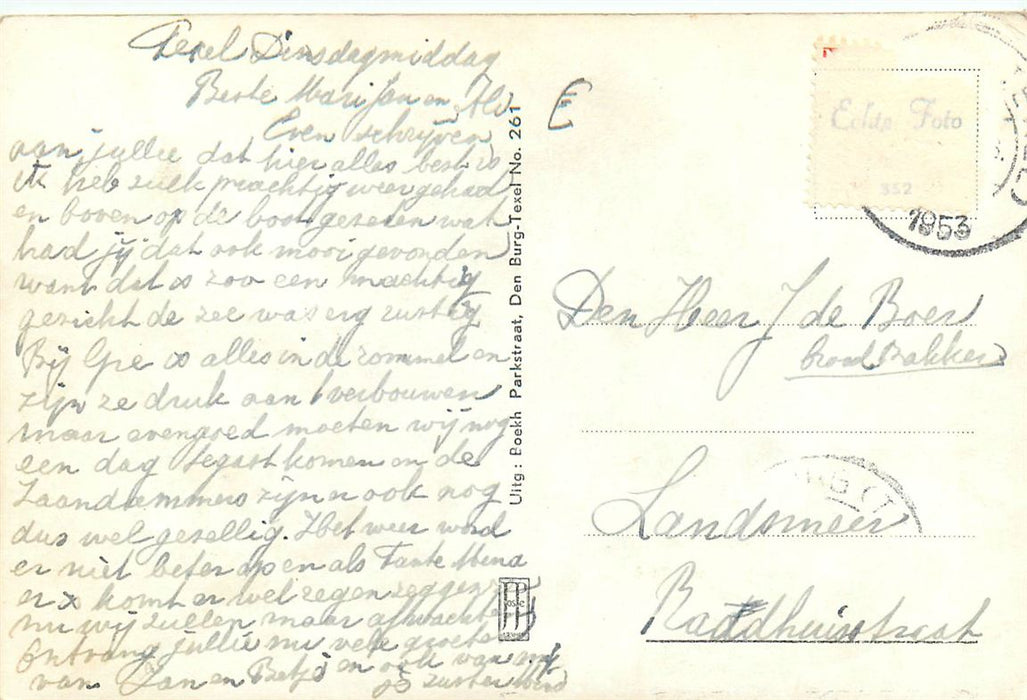 Texel Dinsdagmiddag
Beste Marijan en Ali
Even schrijven
aan jullie dat hier alles best is
ik heb zulk prachtig weer gehad
en boven op de boot gezeten wat
had jij dat ook mooi gevonden
want dat is zoo een machtig
gezicht de zee was erg rustig
Bij is alles in de rommel en
zijn ze druk aan 't verbouwen
maar evengoed moeten wij nog
een dag te gast komen en de
Zaandammers zijn er ook nog
dus wel gezellig. Het weer word
er niet beter op en als Tante Mina
er is komt er wel regen zeggen ze
nu wij zullen maar afwachten
Ontvang jullie nu vele groeten
van Jan en Betje en ook van mij
je zuster
Uitg: Boekh Parkstraat, Den Burg-Texel No. 261
Echte Foto
352
1953
Den Heer J de Boer
broodbakker
Landsmeer
Raadhuisstraat